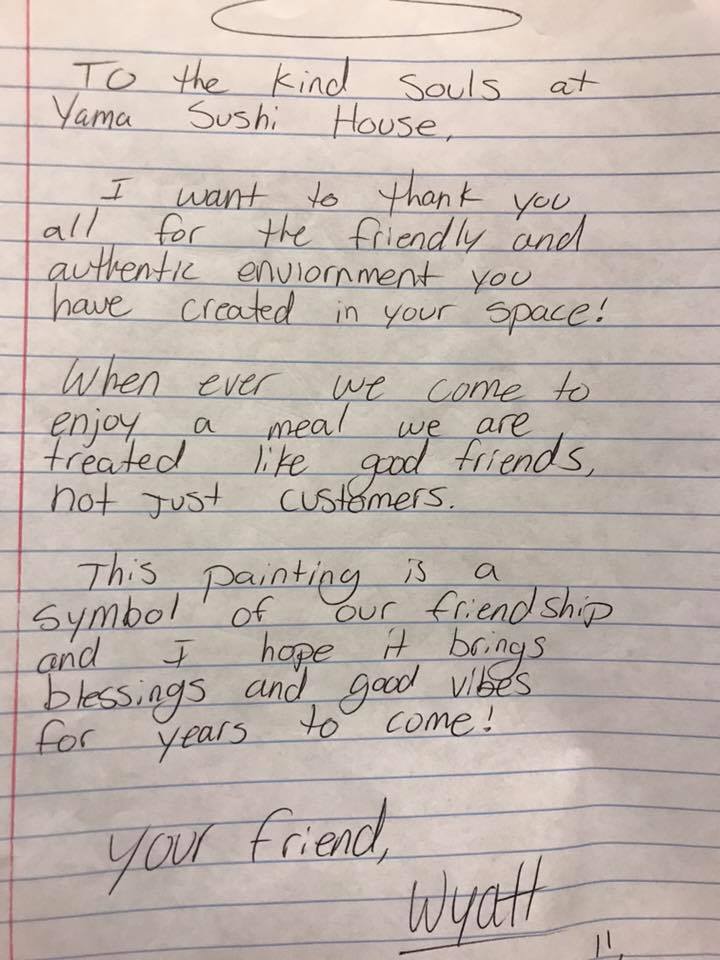 To the kind souls at
Yama Sushi House,
I want to thank you
all for the friendly and
authentic enviornment you
have created in your space!
When ever we come to
enjoy a meal we are
treated like good friends,
not just customers.
This painting is a
symbol of our friendship
and I hope it brings
blessings and good vibes
for years to come!
Your friend,
Wyatt